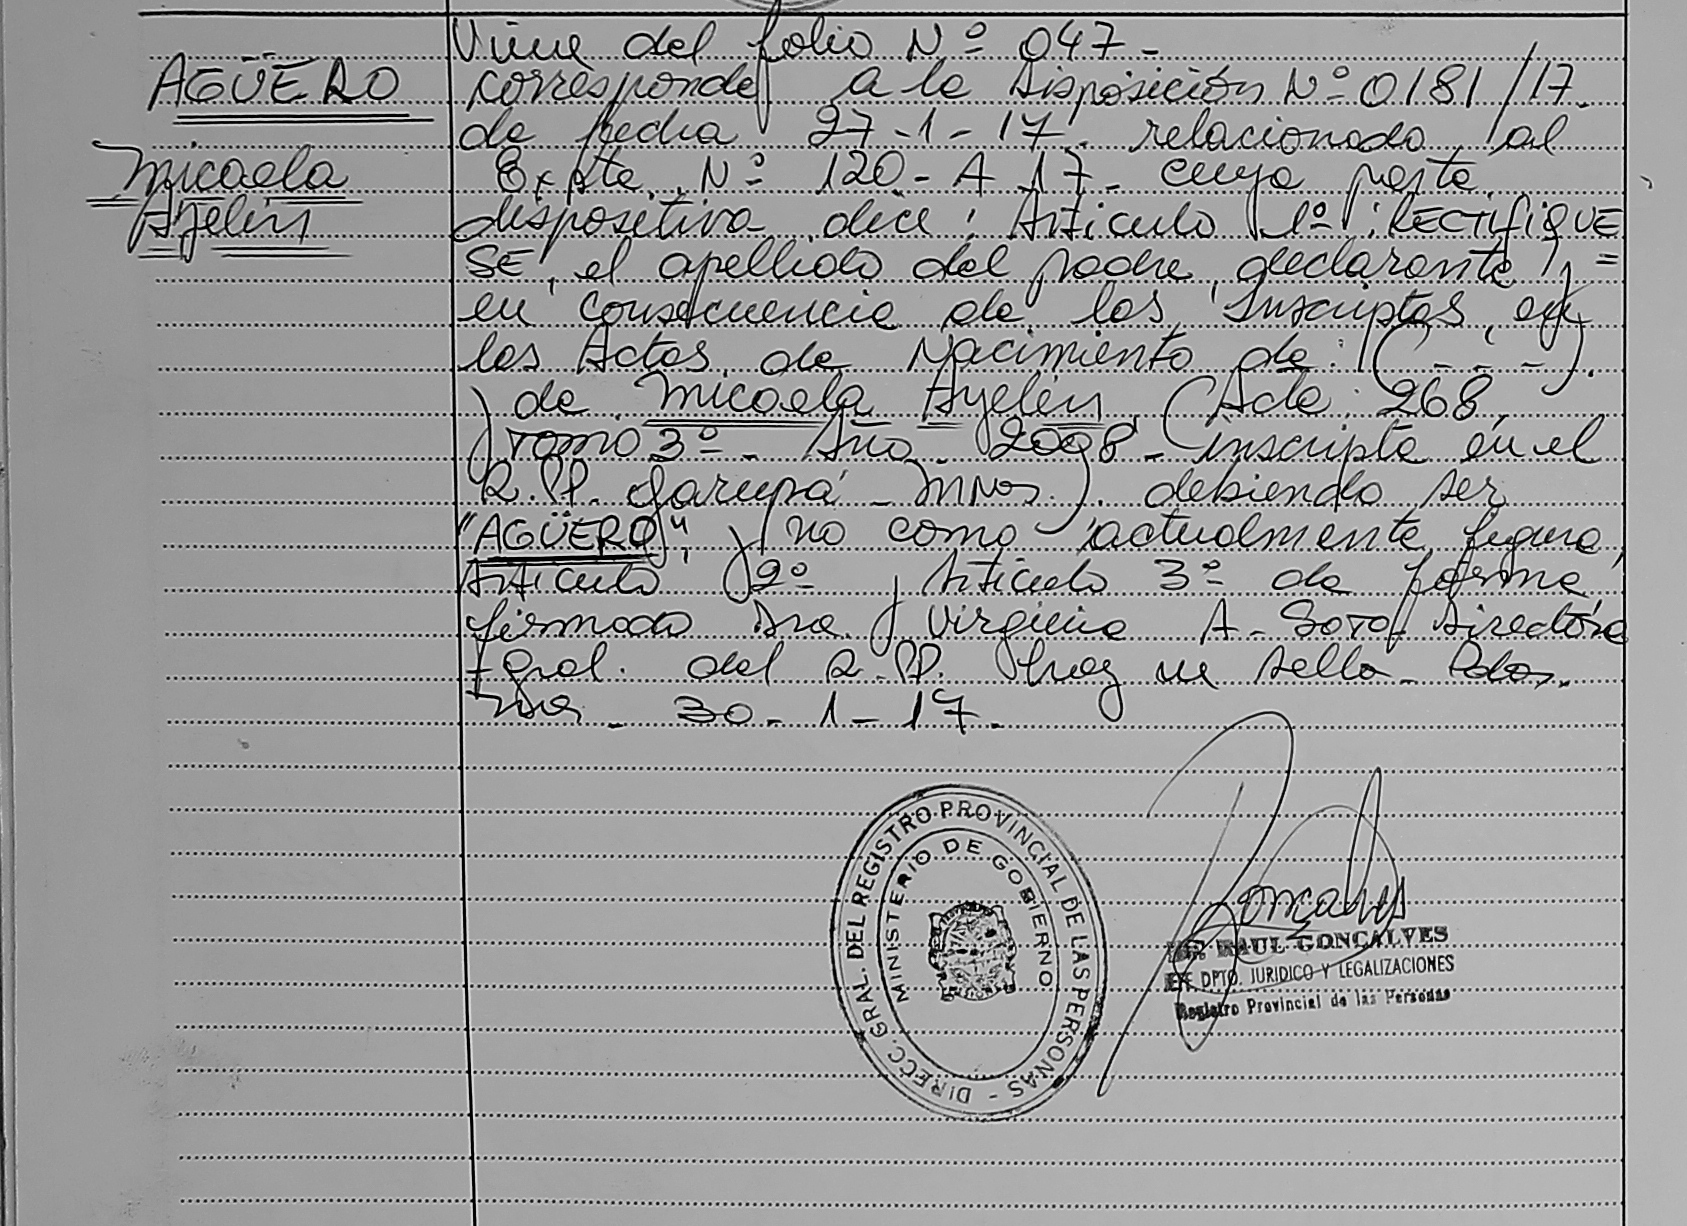 AGÜERO
Micaela
Ayelén
Viene del folio Nº 047-
corresponde a la Disposición Nº 0181/17.
de fecha 27-1-17. relacionado al
Expte. Nº 120-A-17- cuya parte
dispositiva dice: Artículo 1º: RECTIFIQUE
SE, el apellido del padre declarante y =
en consecuencia de los Inscriptos, en
las Actas de Nacimiento de: (- - - -).
y de Micaela Ayelén (Acta: 268,
Tomo 3º- Año 2008- inscripta en el
R.P.P. Garupá - Mnes.). debiendo ser
"AGÜERO", y no como actualmente figura,
Artículo 2º y Artículo 3º de forma
firmado Dra. Virginia A. Soto Directora
Gral. del R.P.P. Hay un sello- Pdas.
Mnes - 30-1-17-
DIRECC. GRAL. DEL REGISTRO PROVINCIAL DE LAS PERSONAS -
MINISTERIO DE GOBIERNO
MISIONES
Goncalves
RAUL GONCALVES
JEF. DPTO. JURIDICO Y LEGALIZACIONES
Registro Provincial de las Personas